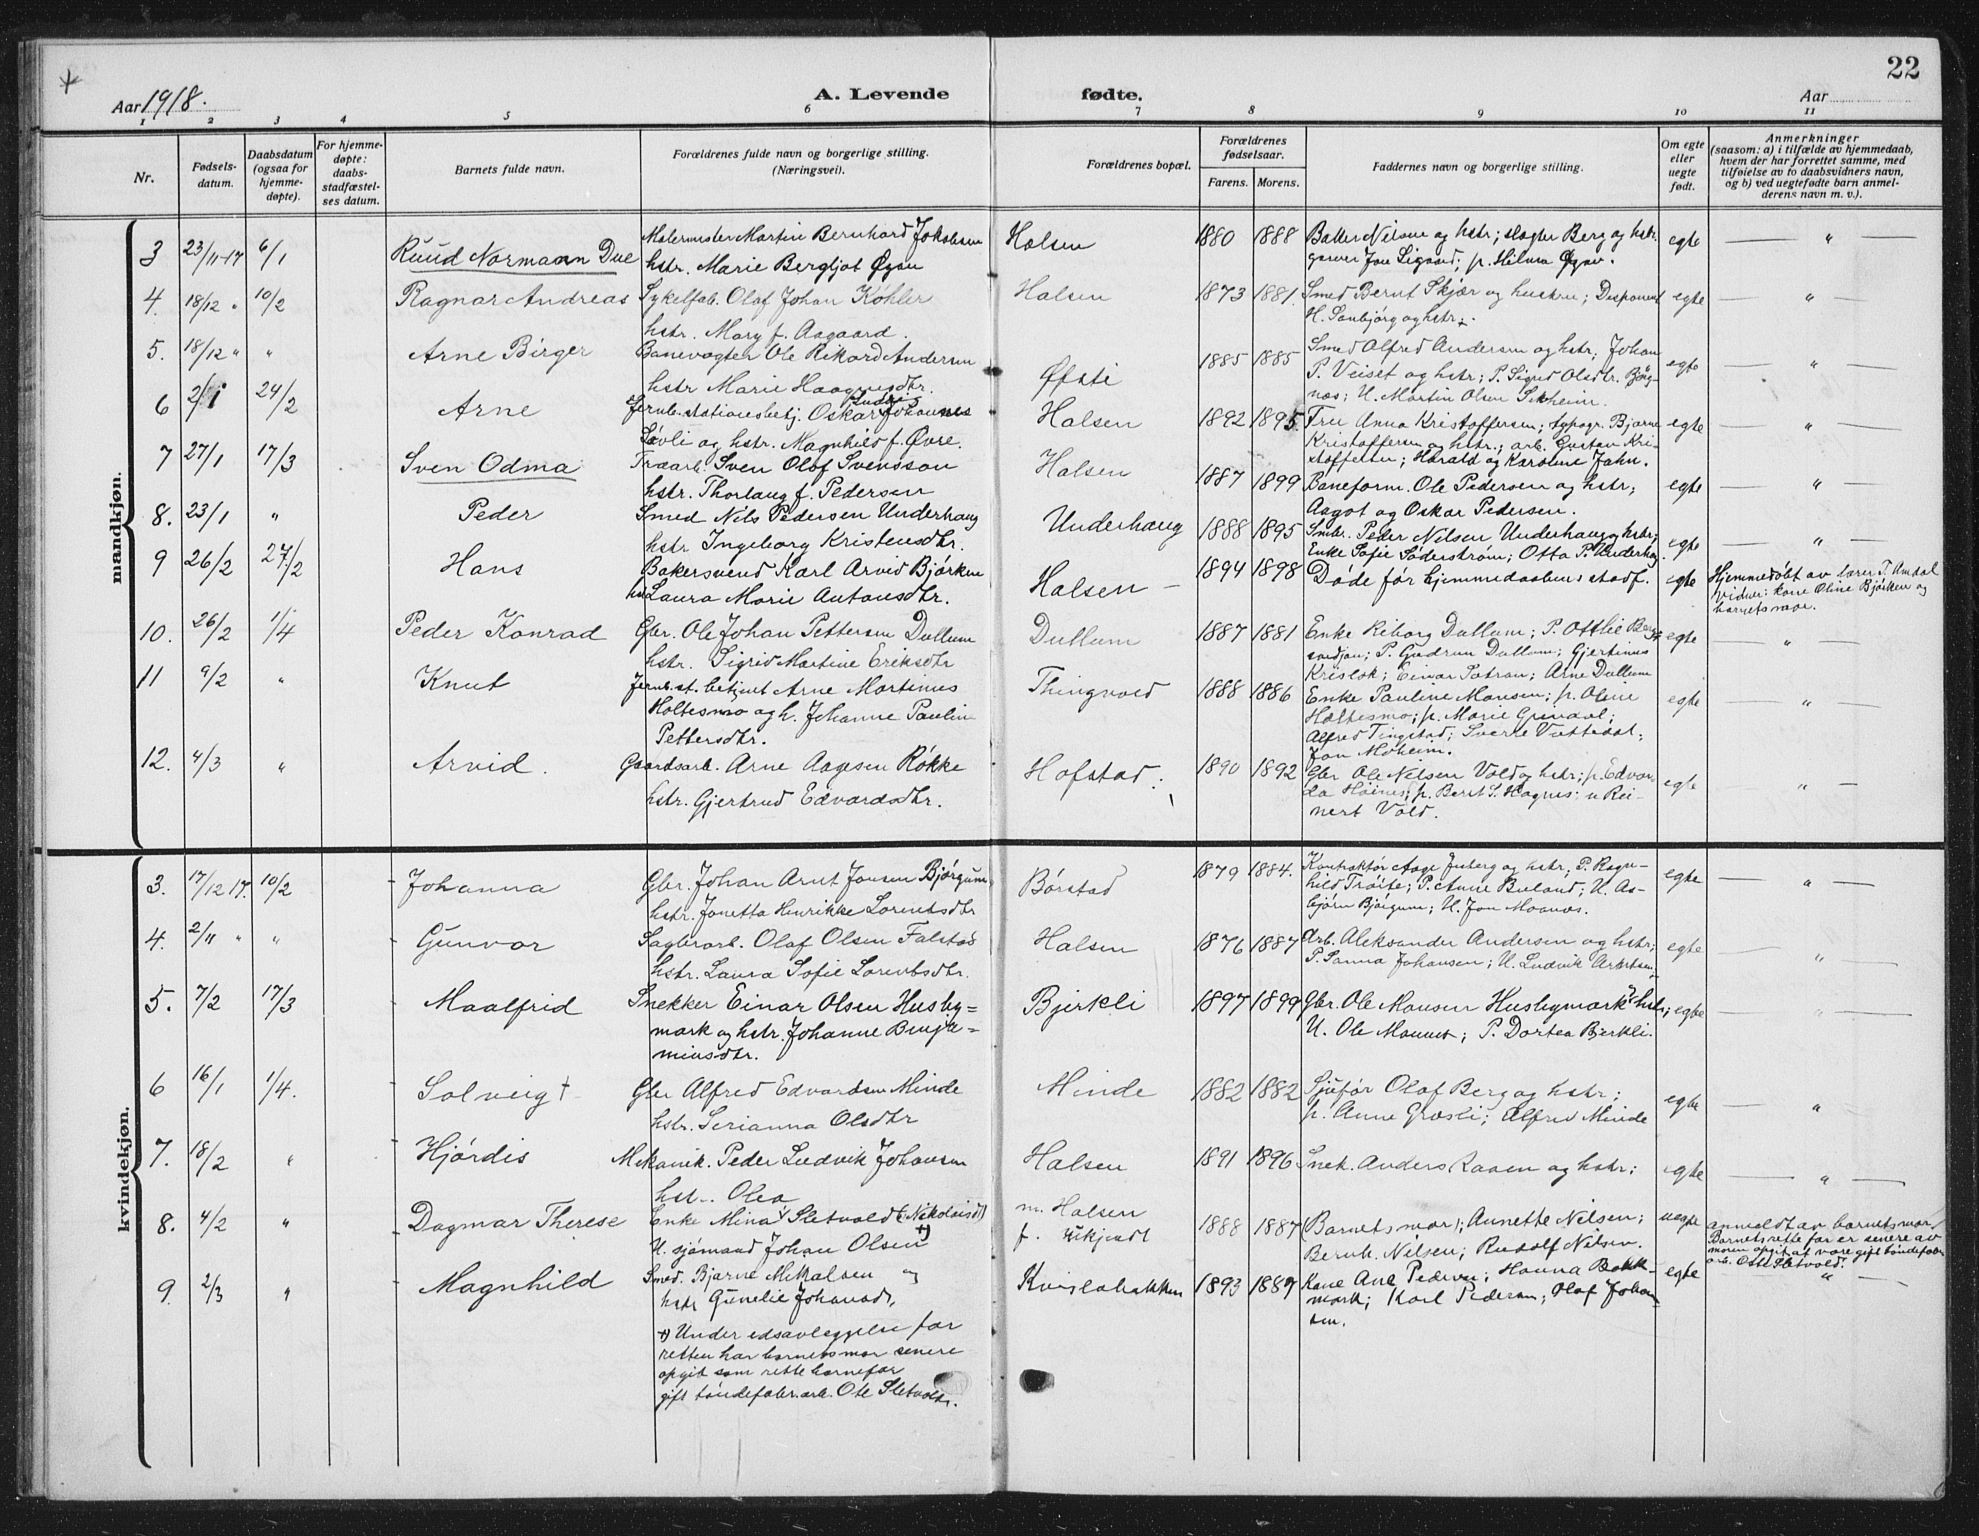 22
Aar 1918.
A. Levende fødte.
Aar
1 2 3 4 5 6 7 8 9 10 11
Nr.
Fødsels-
datum.
Daabsdatum
(ogsaa for
hjemme-
døpte).
For hjemme-
døpte:
daabs-
stadfæstel-
ses datum.
Barnets fulde navn.
Forældrenes fulde navn og borgerlige stilling.
(Næringsvei).
Forældrenes bopæl.
Forældrenes
fødselsaar.
Farens. Morens.
Faddernes navn og borgerlige stilling.
Om egte
eller
uegte
født.
Anmerkninger
(saasom: a) i tilfælde av hjemmedaab,
hvem der har forrettet samme, med
tilføielse av to daabsvidners navn,
og b) ved uegtefødte barn anmel-
derens navn m. v.).
mandkjøn.
3 23/11-17 6/1 Ruud Normann Due Malermester Martin Bernhard Jakobsen Halsen 1880 1888 Nilsen og hstr; slagter Berg og hstr. egte — " —
hstr. Marie Bergljot Øyan
garver p. Hilma Øyan.
4. 18/12 " 10/2 Ragnar Andreas Sykelfab. Olaf Johan Køhler Halsen 1873 1881. Smed Bernt Skjær og hustru; Disponent egte — " —
hstr. Mary f. Aagaard.
H. Sanbjørg og hstr.
5. 18/12 " " Arne Birger Banevogter Ole Rikard Andersen Øfsti 1885 1885 Smed Alfred Andersen og hstr. Johan egte — " —
hstr Marie Haagensdtr.
P. Veiset og hstr; P. Sigrid Olsdtr.
U. Martin Olsen
6 2/1 24/2 Arne Jernb. stationsbetj. Oskar Johannes Halsen 1892 1895. Fru Anna Kristoffersen; typogr. Bjarne egte — " —
Løvli og hstr. Magnhild f. Øvre.
Kristoffersen og hstr.; arb. Gustav Kri-
stoffersen; Harald og Karoline Jahn.
7 27/1 17/3 Sven Odma Træarb. Sven Olof Svensson Halsen 1887 1899 Baneform. Ole Pedersen og hstr; egte — " —
hstr. Thorlaug f. Pedersen
Aagot og Oskar Pedersen.
8. 23/1 " Peder Smed Nils Pedersen Underhaug Underhaug 1888 1895 Smbr. Peder Nilsen Underhaug og hstr; egte — " —
hstr Ingeborg Kristensdtr.
Enke Sofie Søderstrøm; Otto P. Underhaug.
9 26/2 27/2 Hans Bakersvend Karl Arvid Bjørken Halsen — 1894 1898 Døde før hjemmedaabens stadf. egte Hjemmedøbt av lærer T. Amdal
Laura Marie Antonsdtr.
Vidner: kone Oline Bjørken og
barnets mor.
10. 26/2 1/4 Peder Konrad Gbr. Ole Johan Pettersen Dullum Dullum 1887 1881 Enke Riborg Dullum; P. Ottilie egte — " —
hstr. Sigrid Martine Eriksdtr
P. Gudrun Dullum; Gjertinus
Einar Arne Dullum
11 9/2 " Knut Jernb. st. betjent Arne Martinus Thingvold 1888 1886 Enke Pauline Monsen; p. Oline egte — " —
Holtesmo og h. Johanne Pauline
Pettersdtr.
Holtesmo; p. Marie Grindal;
Alfred Tingstad; Sverre
Jon Moheim.
12. 4/3 " Arvid. Gaardsarb. Arne Aagesen Røkke Hofstad. 1890 1892 Gbr Ole Nilsen Vold og hstr; p. Edvar- egte — " —
hstr. Gjertrud Edvardsdtr.
da p. Berit S. Hognes; u. Rei-
nert Vold.
kvindekjøn.
3. 17/12 17. 10/2 Johanna Gbr. Johan Arnt Jonsen Bjørgum Børstad 1879 1884. Kontraktør Aage og hstr, P. Ragn- egte — " —
hstr. Jonetta Henrikke Lorentsdtr
hild Trøite; P. Anne U. As-
bjørn Bjørgum; U. Jon Moanes.
4. 2/11 " " Gunvor Sagbrarb. Olaf Olsen Falstad Halsen 1876 1887 Arb. Aleksander Andersen og hstr; egte — " —
hstr. Laura Sofie Lorentsdtr.
P. Sanna Johansen; U. Ludvik
5. 7/2 17/3 Maalfrid Snekker Einar Olsen Husby- Bjerkli 1897 1899 Gbr. Ole Monsen Husbymark's hstr; egte — " —
mark og hstr. Johanne Benja-
minsdtr.
U. Ole P. Dortea Bjerkli.
6 16/1 1/4. Solveig † Gbr Alfred Edvardsen Minde Minde 1882 1882 Sjufør Olaf Berg og hstr; egte — " —
hstr. Serianna Olsdtr
p. Anne Græsli; Alfred Minde
7. 18/2 " Hjørdis Mekanik. Peder Ludvik Johansen Halsen 1891 1896 Snek. Anders Raaen og hstr; egte — " —
hstr. Olea
8. 4/2 " Dagmar Therese Enke Mina Sletvold (Nikolaisdtr) m. Halsen 1888 1887 (Barnets mor); Annette Nilsen; uegte anmeldt av barnets mor
U. sjømand Johan Olsen †) f. ukjendt
Bernh. Nilsen; Rudolf Nilsen.
Barnets rette far er senere av
moren opgit at være gift tøndefabr.
arb. Ole Sletvold.
9. 2/3 " Magnhild Smed. Bjarne Mikalsen og Kvislabakken 1893 1889 Kone Ane Pedersen; Hanna Bakk- egte " —
hstr Gunelie Johansdtr,
mark; Karl Pedersen; Olaf Johan-
sen.
†) Under edsavleggelse for
retten har barnets mor senere
opgit som rette barnefar
gift tøndefabr. arb. Ole Sletvold.